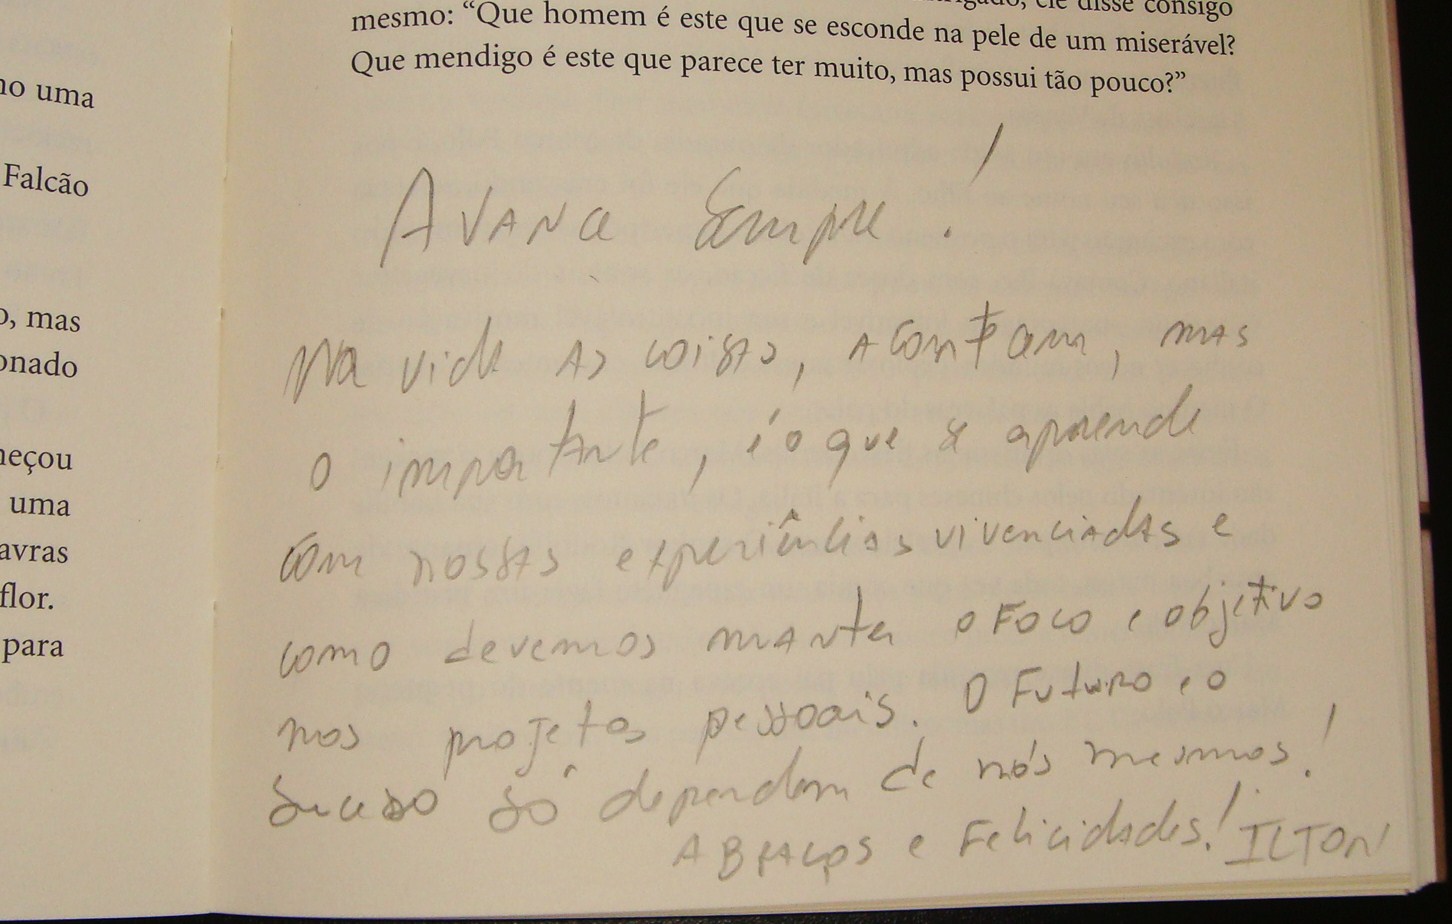 no uma
Falcão
o, mas
onado
neçou
uma
avras
flor.
para
ele disse consigo
mesmo: “Que homem é este que se esconde na pele de um miserável?
Que mendigo é este que parece ter muito, mas possui tão pouco?”
AVANCE Sempre!
NA vida AS COISAS, ACONTECEM, MAS
O importante, é o que se aprende
COM NOSSAS experiências vivenciadas e
COMO devemos MANTER O FOCO e objetivo
nos projetos pessoais. O Futuro e o
Sucesso só dependem de nós mesmos!
ABRAÇOS e Felicidades! ILTON